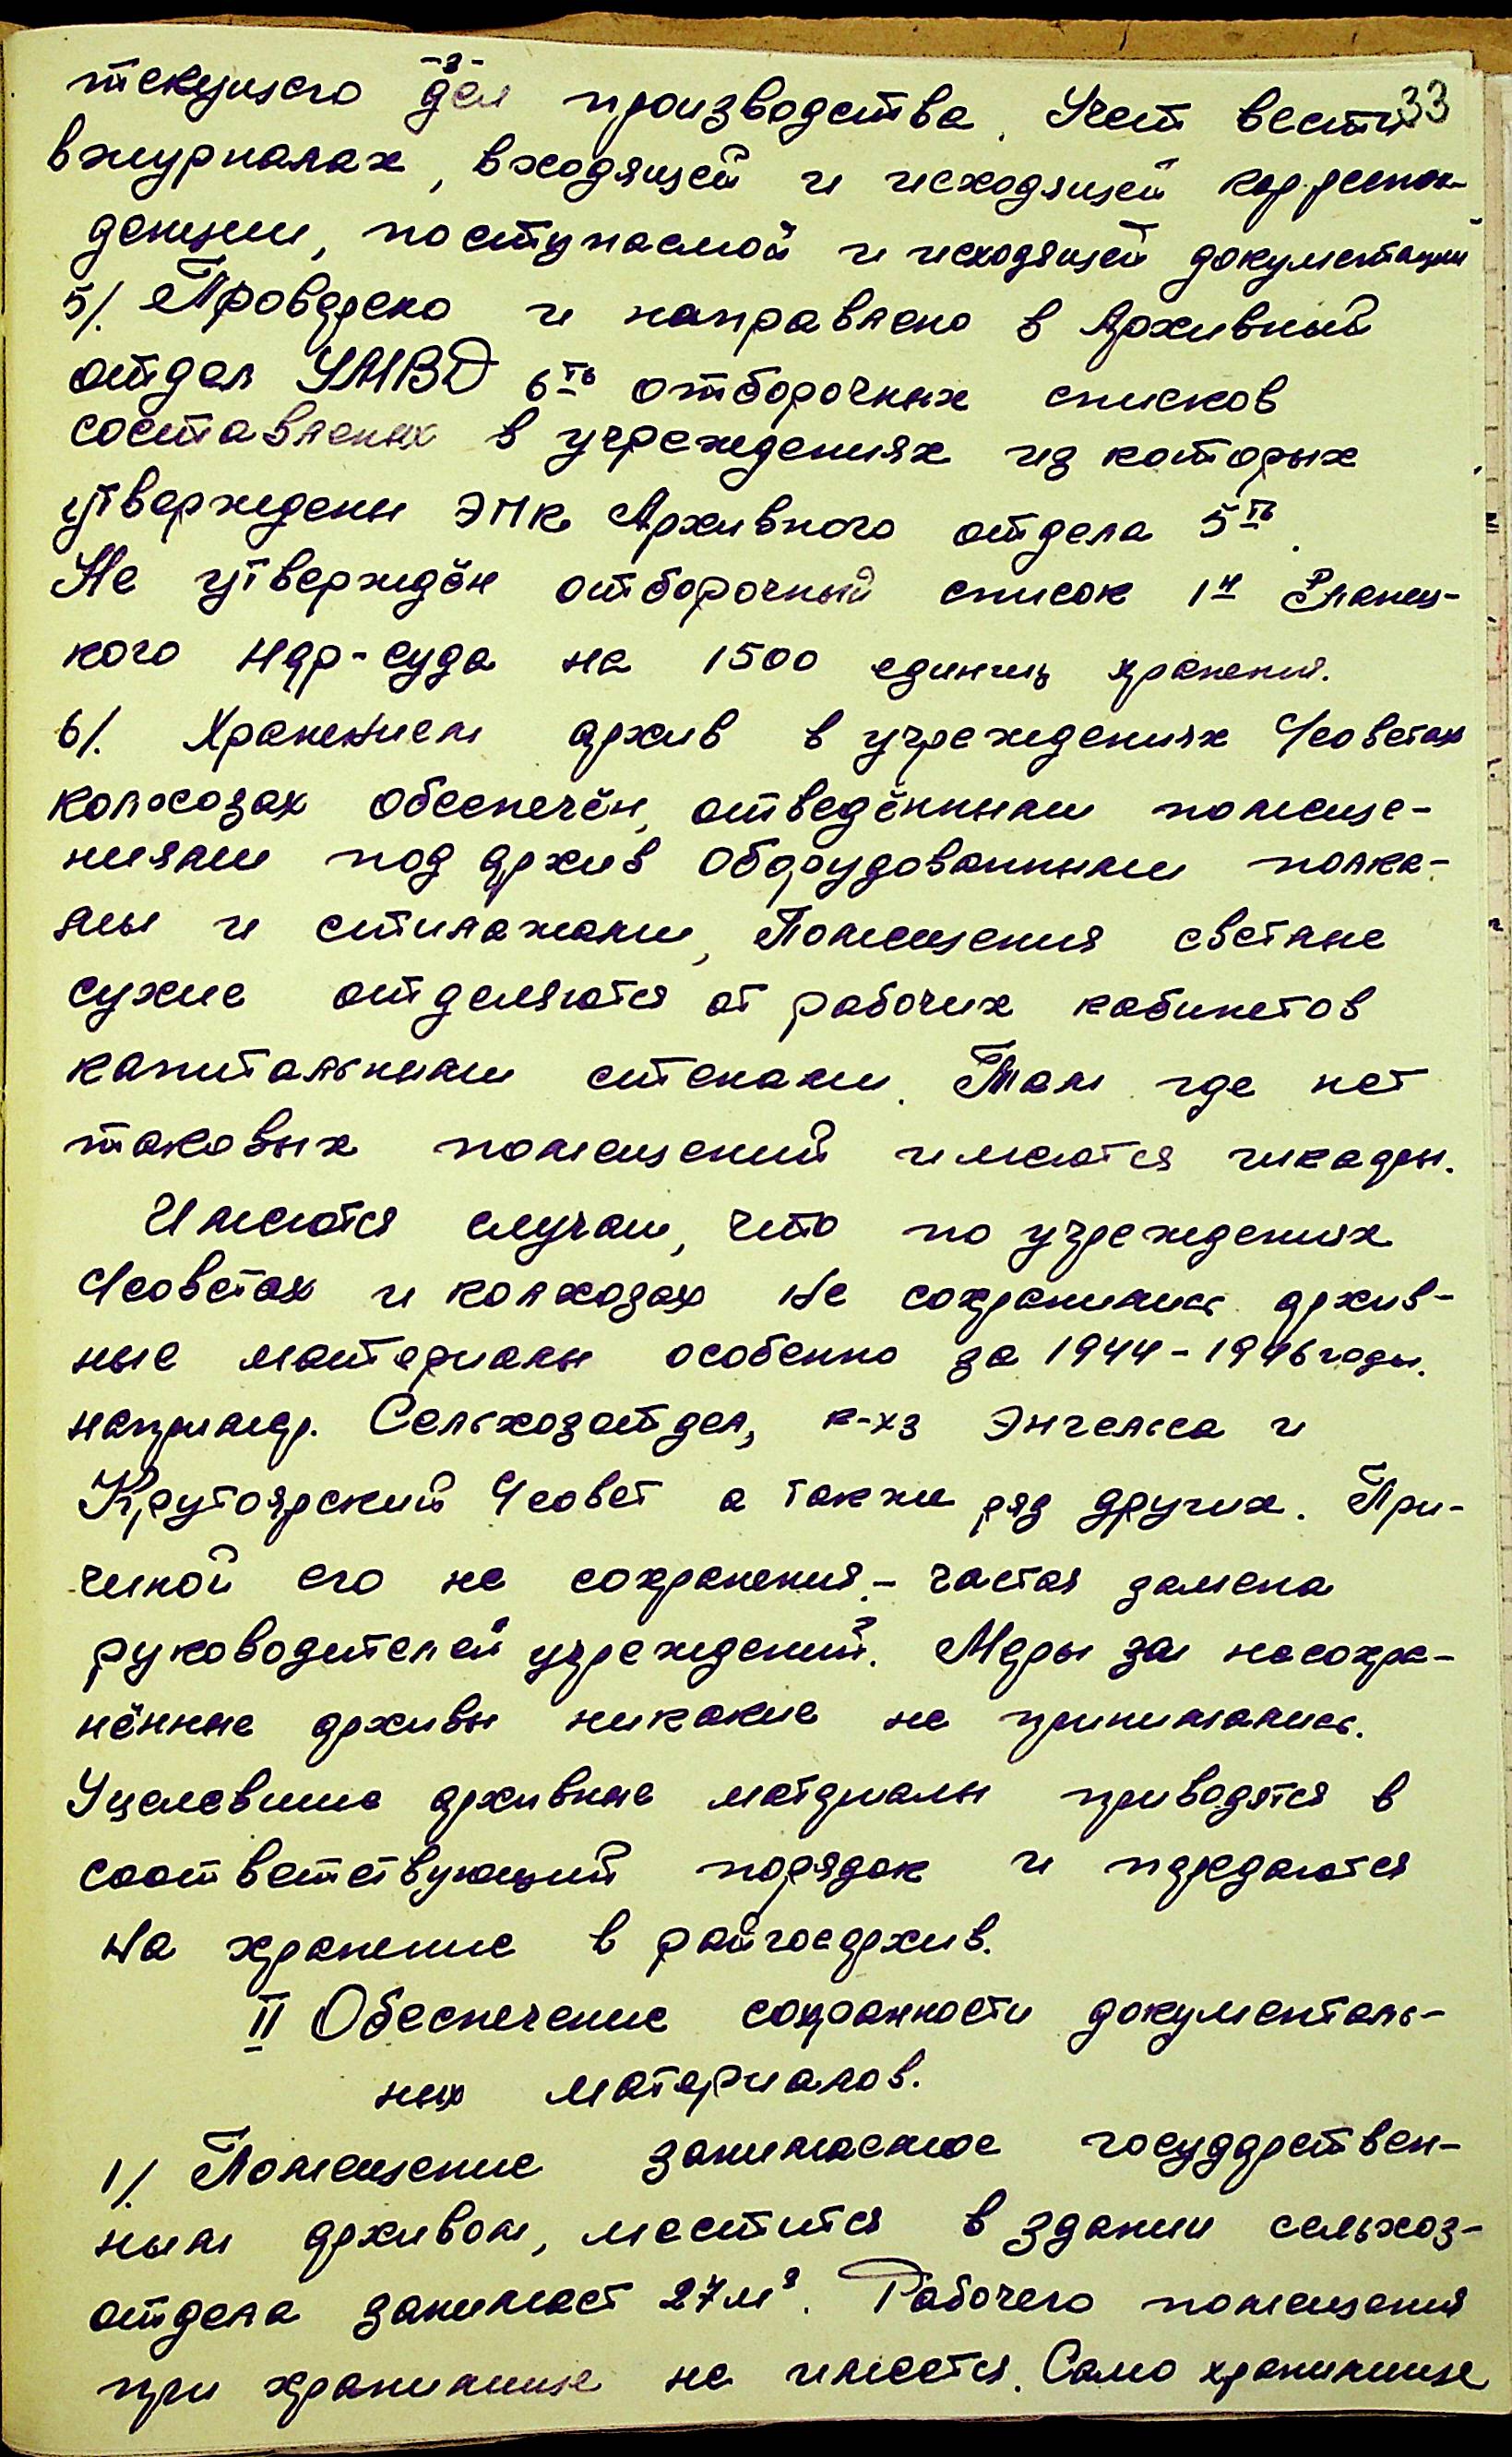 -3-
33
текущего дел производства. Учет вести
в журналах, входящей и исходящей корреспон-
денции, поступаемой и исходящей документации
5/. Проверено и направлено в Архивный
отдел УМВД 6ть отборочных списков
составленых в учреждениях из которых
утверждены ЭПК Архивного отдела 5ть.
Не утверждён отборочный список 1й
кого Нар-суда на 1500 единиц хранения.
6/. Хранением архив в учреждениях Ч/советах
колхозах обеспечён, отведёнными помеще-
ниями под архив оборудованными полка-
мы и стилажами, Помещения светлые
сухие отделяются от рабочих кабинетов
капитальными стенами. Там где нет
таковых помещений имеются шкафы.
Имеются случаи, что по учреждениях
Ч/советах и колхозах не сохранились архив-
ные материалы особенно за 1944-1946 годы.
например. Сельхозотдел, к-хз Энгельса и
Крутоярский Ч/совет а также ряд других. При-
чиной его не сохранения - частая замена
руководителей учреждений. Меры за несохра-
нённые архивы никакие не принимались.
Уцелевшие архивные материалы приводятся в
соответствующий порядок и передаются
на хранение в райгосархив.
II Обеспечение сохранности документаль-
ных материалов.
1/. Помещение занимаемое государствен-
ным архивом, местится в здании сельхоз-
отдела занимает 27м². Рабочего помещения
при хранилище не имеется. Само хранилище